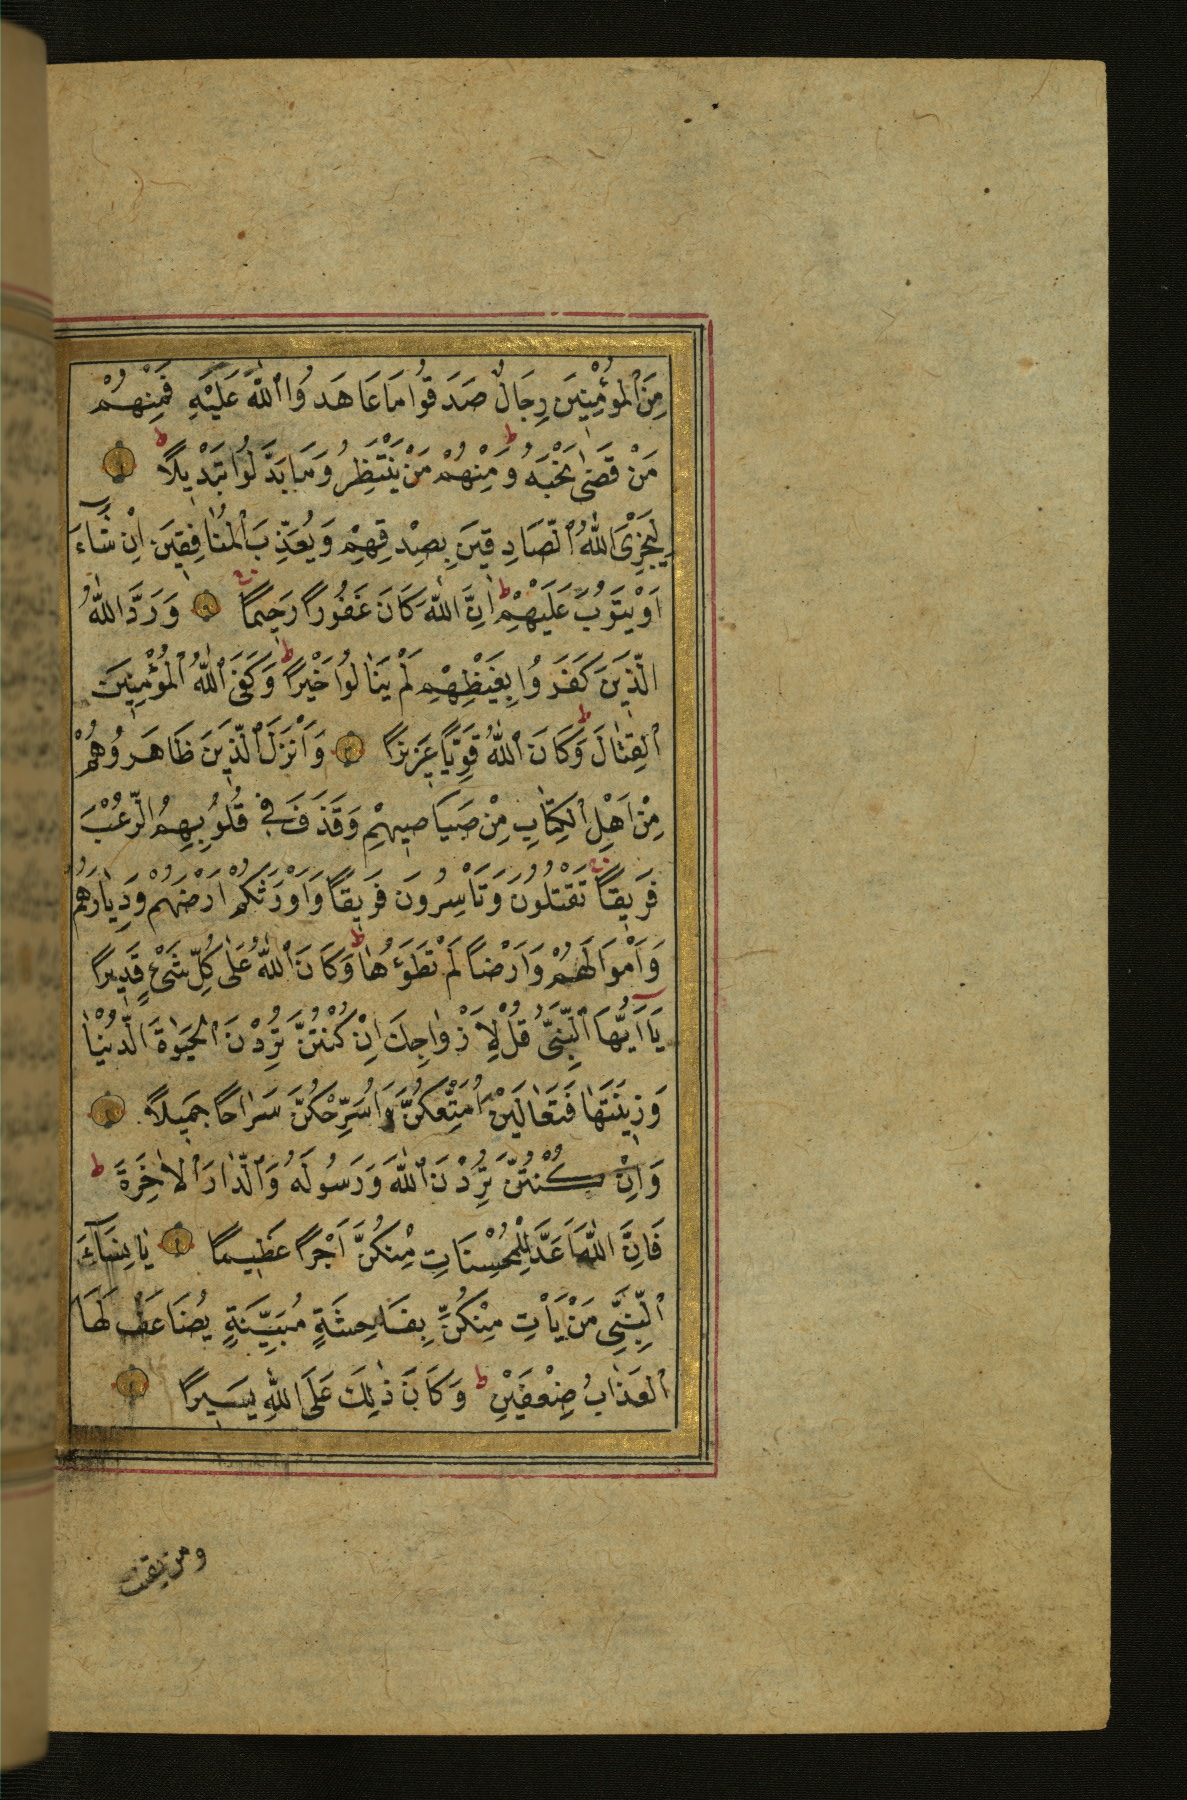 مِنَ ٱلْمُؤْمِنِينَ رِجَالٌ صَدَقُوا مَا عَاهَدُوا ٱللّٰهَ عَلَيْهِ فَمِنْهُمْ
مَنْ قَضٰى نَحْبَهُ وَمِنْهُمْ مَنْ يَنْتَظِرُ وَمَا بَدَّلُوا تَبْدِيلًا
لِيَجْزِىَ ٱللّٰهُ ٱلصَّادِقِينَ بِصِدْقِهِمْ وَيُعَذِّبَ ٱلْمُنَافِقِينَ اِنْ شَاءَ
اَوْ يَتُوبَ عَلَيْهِمْ اِنَّ ٱللّٰهَ كَانَ غَفُورًا رَحِيمًا وَرَدَّ ٱللّٰهُ
الَّذِينَ كَفَرُوا بِغَيْظِهِمْ لَمْ يَنَالُوا خَيْرًا وَكَفَى ٱللّٰهُ ٱلْمُؤْمِنِينَ
ٱلْقِتَالَ وَكَانَ ٱللّٰهُ قَوِيًّا عَزِيزًا وَاَنْزَلَ ٱلَّذِينَ ظَاهَرُوهُمْ
مِنْ اَهْلِ ٱلْكِتَابِ مِنْ صَيَاصِيهِمْ وَقَذَفَ فِى قُلُوبِهِمُ ٱلرُّعْبَ
فَرِيقًا تَقْتُلُونَ وَتَاْسِرُونَ فَرِيقًا وَاَوْرَثَكُمْ اَرْضَهُمْ وَدِيَارَهُمْ
وَاَمْوَالَهُمْ وَاَرْضًا لَمْ تَطَؤُهَا وَكَانَ ٱللّٰهُ عَلٰى كُلِّ شَىْءٍ قَدِيرًا
يَا اَيُّهَا ٱلنَّبِىُّ قُلْ لِاَزْوَاجِكَ اِنْ كُنْتُنَّ تُرِدْنَ ٱلْحَيٰوةَ ٱلدُّنْيَا
وَزِينَتَهَا فَتَعَالَيْنَ اُمَتِّعْكُنَّ وَاُسَرِّحْكُنَّ سَرَاحًا جَمِيلًا
وَاِنْ كُنْتُنَّ تُرِدْنَ ٱللّٰهَ وَرَسُولَهُ وَٱلدَّارَ ٱلْاٰخِرَةَ
فَاِنَّ ٱللّٰهَ اَعَدَّ لِلْمُحْسِنَاتِ مِنْكُنَّ اَجْرًا عَظِيمًا يَا نِسَاءَ
ٱلنَّبِىِّ مَنْ يَاْتِ مِنْكُنَّ بِفَاحِشَةٍ مُبَيِّنَةٍ يُضَاعَفْ لَهَا
ٱلْعَذَابُ ضِعْفَيْنِ وَكَانَ ذٰلِكَ عَلَى ٱللّٰهِ يَسِيرًا
ومن يقنت